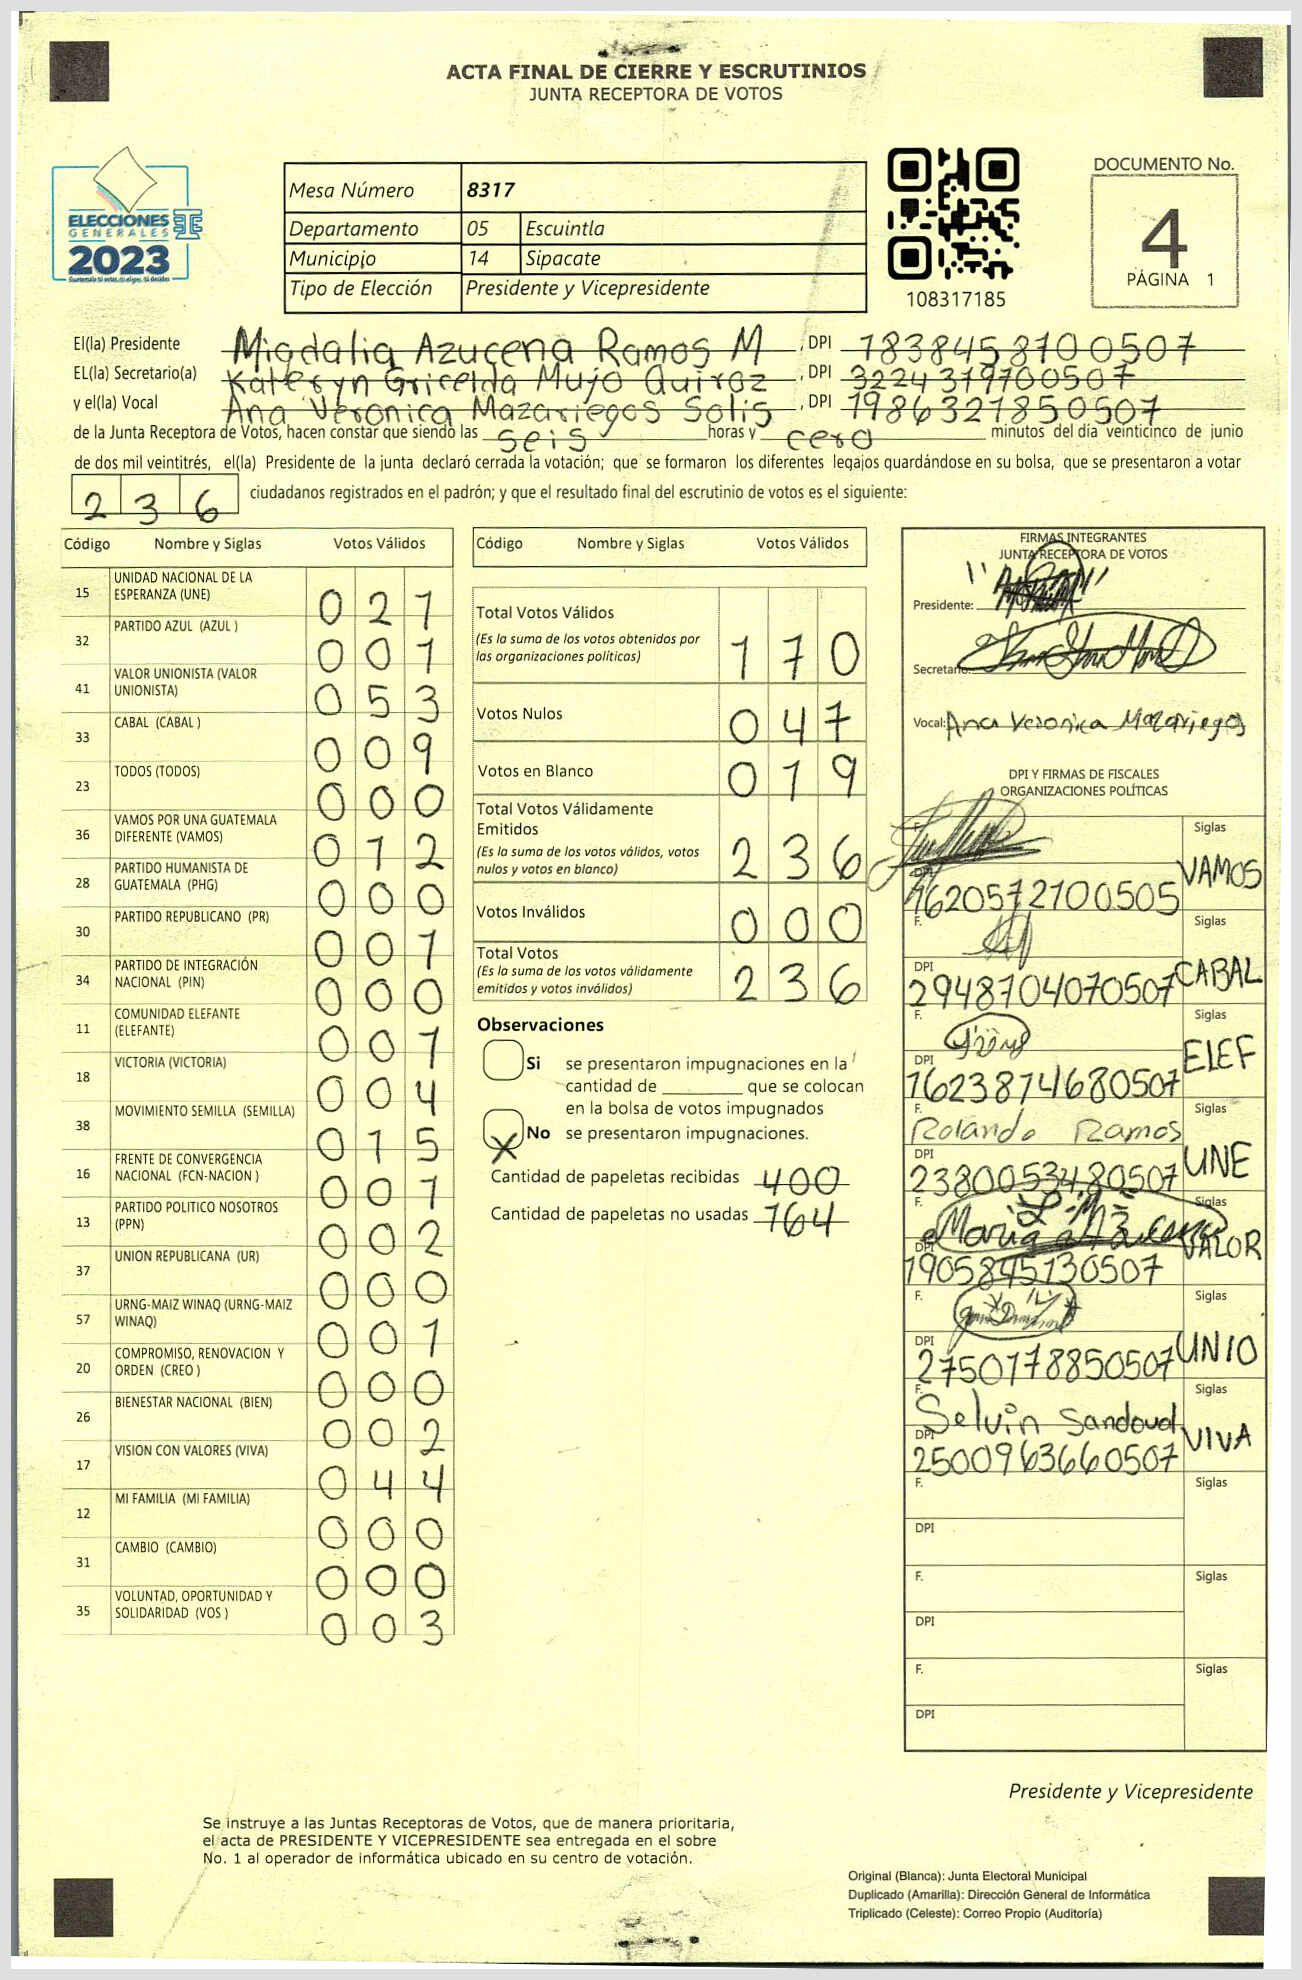 ACTA FINAL DE CIERRE Y ESCRUTINIOS
JUNTA RECEPTORA DE VOTOS
ELECCIONES
GENERALES
2023
Mesa Número 8317
Departamento 05 Escuintla
Municipio 14 Sipacate
Tipo de Elección Presidente y Vicepresidente
108317185
DOCUMENTO No.
4
PÁGINA 1
El(la) Presidente Migdalia Azucena Ramos M , DPI 1838458700507
EL(la) Secretario(a) Kateryn Gricelda Mujo Quiroz , DPI 3224379700507
y el(la) Vocal Ana Veronica Mazariegos Solis , DPI 1986327850507
de la Junta Receptora de Votos, hacen constar que siendo las seis horas y cero minutos del día veinticinco de junio
de dos mil veintitrés, el(la) Presidente de la junta declaró cerrada la votación; que se formaron los diferentes legajos guardándose en su bolsa, que se presentaron a votar
236 ciudadanos registrados en el padrón; y que el resultado final del escrutinio de votos es el siguiente:
Código Nombre y Siglas Votos Válidos
15 UNIDAD NACIONAL DE LA ESPERANZA (UNE) 027
32 PARTIDO AZUL (AZUL ) 001
41 VALOR UNIONISTA (VALOR UNIONISTA) 053
33 CABAL (CABAL ) 009
23 TODOS (TODOS) 000
36 VAMOS POR UNA GUATEMALA DIFERENTE (VAMOS) 012
28 PARTIDO HUMANISTA DE GUATEMALA (PHG) 000
30 PARTIDO REPUBLICANO (PR) 001
34 PARTIDO DE INTEGRACIÓN NACIONAL (PIN) 000
11 COMUNIDAD ELEFANTE (ELEFANTE) 001
18 VICTORIA (VICTORIA) 004
38 MOVIMIENTO SEMILLA (SEMILLA) 015
16 FRENTE DE CONVERGENCIA NACIONAL (FCN-NACION ) 001
13 PARTIDO POLITICO NOSOTROS (PPN) 002
37 UNION REPUBLICANA (UR) 000
57 URNG-MAIZ WINAQ (URNG-MAIZ WINAQ) 001
20 COMPROMISO, RENOVACION Y ORDEN (CREO ) 000
26 BIENESTAR NACIONAL (BIEN) 002
17 VISION CON VALORES (VIVA) 044
12 MI FAMILIA (MI FAMILIA) 000
31 CAMBIO (CAMBIO) 000
35 VOLUNTAD, OPORTUNIDAD Y SOLIDARIDAD (VOS ) 003
Código Nombre y Siglas Votos Válidos
Total Votos Válidos 170
(Es la suma de los votos obtenidos por
las organizaciones políticas)
Votos Nulos 047
Votos en Blanco 019
Total Votos Válidamente
Emitidos 236
(Es la suma de los votos válidos, votos
nulos y votos en blanco)
Votos Inválidos 000
Total Votos 236
(Es la suma de los votos válidamente
emitidos y votos inválidos)
Observaciones
Si se presentaron impugnaciones en la
cantidad de ________ que se colocan
en la bolsa de votos impugnados
X No se presentaron impugnaciones.
Cantidad de papeletas recibidas 400
Cantidad de papeletas no usadas 164
FIRMAS INTEGRANTES
JUNTA RECEPTORA DE VOTOS
Presidente:
Secretario:
Vocal: Ana Veronica Mazariegos
DPI Y FIRMAS DE FISCALES
ORGANIZACIONES POLÍTICAS
F. Siglas
DPI 1620572100505 VAMOS
F. Siglas
DPI 2948704070507 CABAL
F. Siglas
DPI 1623874680507 ELEF
F. Rolando Ramos Siglas
DPI 2380053480507 UNE
F. Maria Siglas
DPI 1905845130507 VALOR
F. Siglas
DPI 2750178850507 UNIO
F. Selvin Sandoval Siglas
DPI 2500963660507 VIVA
F. Siglas
DPI
F. Siglas
DPI
F. Siglas
DPI
Presidente y Vicepresidente
Se instruye a las Juntas Receptoras de Votos, que de manera prioritaria,
el acta de PRESIDENTE Y VICEPRESIDENTE sea entregada en el sobre
No. 1 al operador de informática ubicado en su centro de votación.
Original (Blanca): Junta Electoral Municipal
Duplicado (Amarilla): Dirección General de Informática
Triplicado (Celeste): Correo Propio (Auditoría)